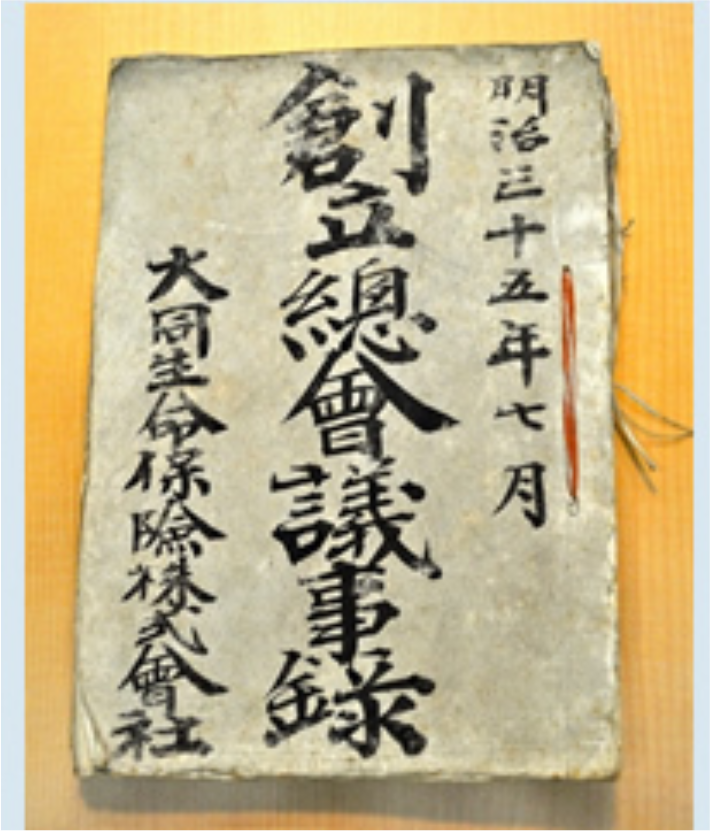 明治三十五年七月
創立總會議事録
大同生命保險株式會社